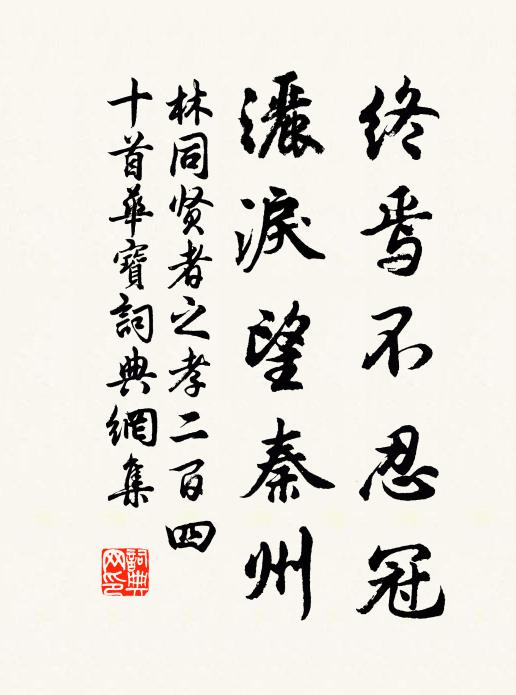 終焉不忍冠
灑淚望秦州
林同贤者之孝二百四
十首華寶詞典網集
詞典網印